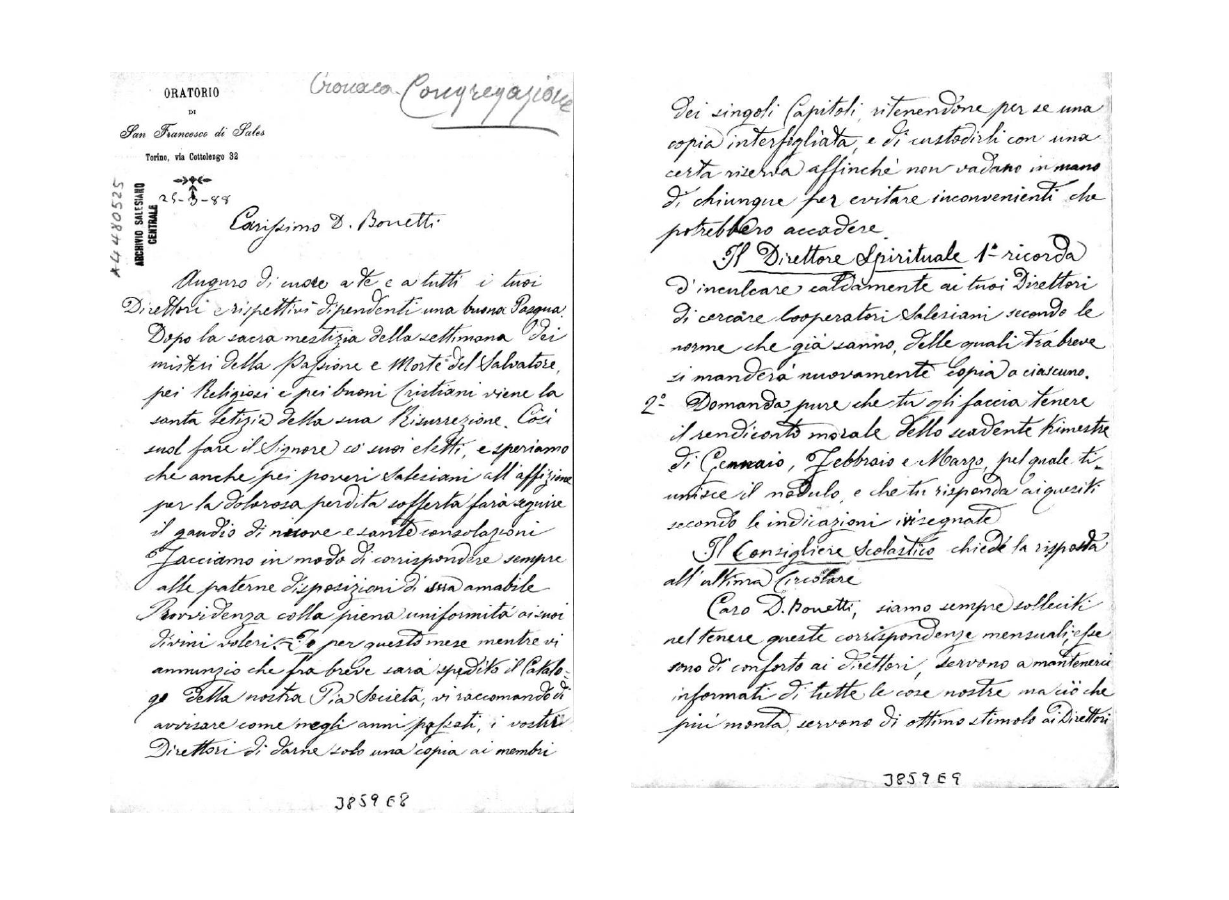 Cronaca Congregazione
ORATORIO
DI
San Francesco di Sales
Torino, via Cottolengo 32
A4480525
ARCHIVIO SALESIANO
CENTRALE
25-3-88
Carissimo D. Bonetti
Auguro di cuore a te e a tutti i tuoi
Direttori e rispettivi dipendenti una buona Pasqua.
Dopo la sacra mestizia della settimana dei
misteri della Passione e Morte del Salvatore,
pei Religiosi e pei buoni Cristiani viene la
santa letizia della sua Risurrezione. Così
suol fare il Signore co' suoi eletti, e speriamo
che anche pei poveri Salesiani all'afflizione
per la dolorosa perdita sofferta farà seguire
il gaudio di nuove e sante consolazioni
Facciamo in modo di corrispondere sempre
alle paterne disposizioni di sua amabile
Provvidenza colla piena uniformità ai suoi
divini voleri. Io per questo mese mentre vi
annunzio che fra breve sarà spedito il Catalo-
go della nostra Pia Società, vi raccomando di
avvisare come negli anni passati, i vostri
Direttori di darne solo una copia ai membri
J859E8
dei singoli Capitoli, ritenendone per se una
copia interfigliata, e di custodirli con una
certa riserva affinchè non vadano in mano
di chiunque per evitare inconvenienti che
potrebbero accadere.
Il Direttore Spirituale 1º ricorda
d'inculcare caldamente ai tuoi Direttori
di cercare Cooperatori Salesiani secondo le
norme che già sanno, delle quali tra breve
si manderà nuovamente copia a ciascuno.
2º Domanda pure che tu gli faccia tenere
il rendiconto morale dello scadente trimestre
di Gennaio, Febbraio e Marzo, pel quale ti
unisce il modulo, e che tu risponda ai quesiti
secondo le indicazioni ivi segnate
Il Consigliere Scolastico chiede la risposta
all'ultima Circolare
Caro D. Bonetti, siamo sempre solleciti
nel tenere queste corrispondenze mensuali; esse
sono di conforto ai direttori, servono a mantenerci
informati di tutte le cose nostre ma ciò che
più monta, servono di ottimo stimolo ai Direttori
J859E9